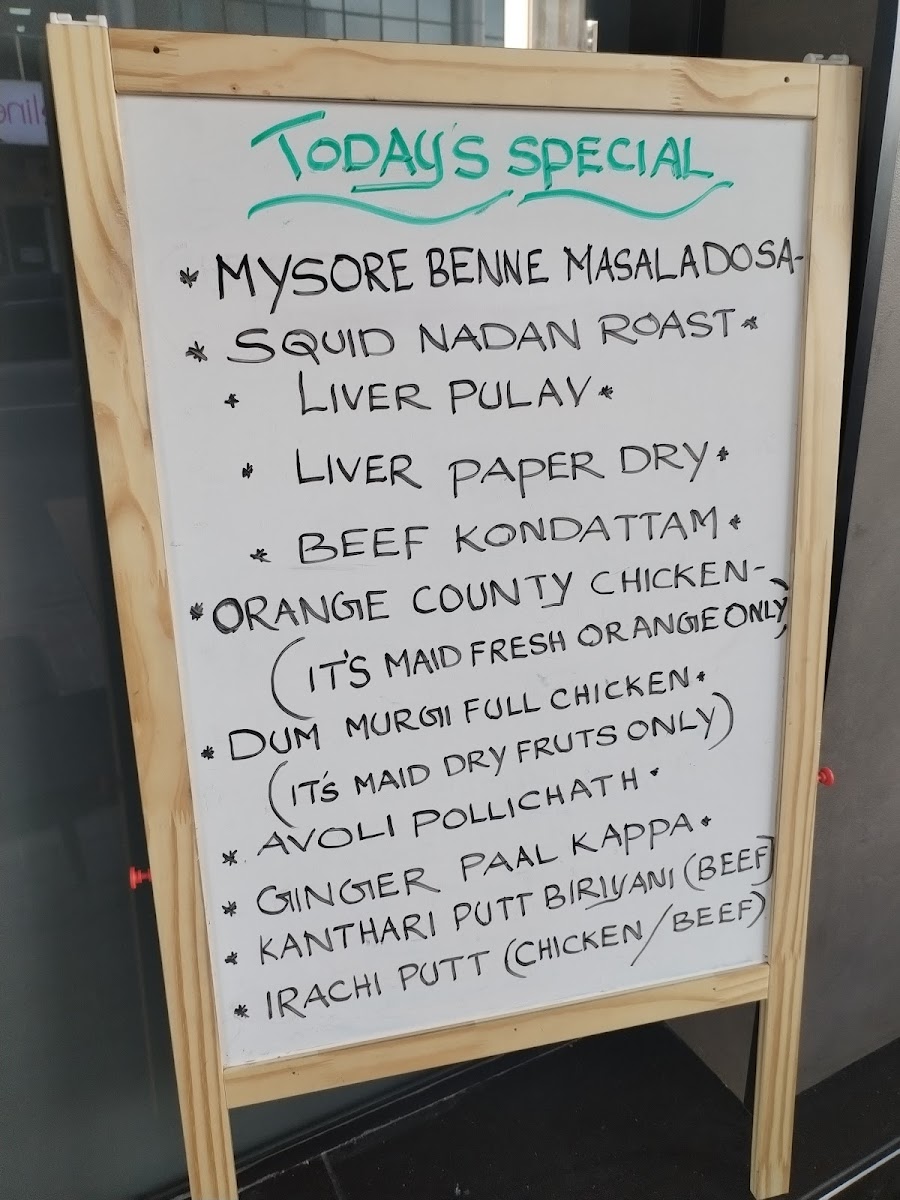 TODAY'S SPECIAL
* MYSORE BENNE MASALADOSA-
* SQUID NADAN ROAST *
* LIVER PULAV *
* LIVER PAPER DRY *
* BEEF KONDATTAM *
* ORANGE COUNTY CHICKEN-
(IT'S MAID FRESH ORANGE ONLY)
* DUM MURGII FULL CHICKEN *
(IT'S MAID DRY FRUTS ONLY)
* AVOLI POLLICHATH *
* GINGER PAAL KAPPA *
* KANTHARI PUTT BIRIYANI (BEEF)
* IRACHI PUTT (CHICKEN/BEEF)